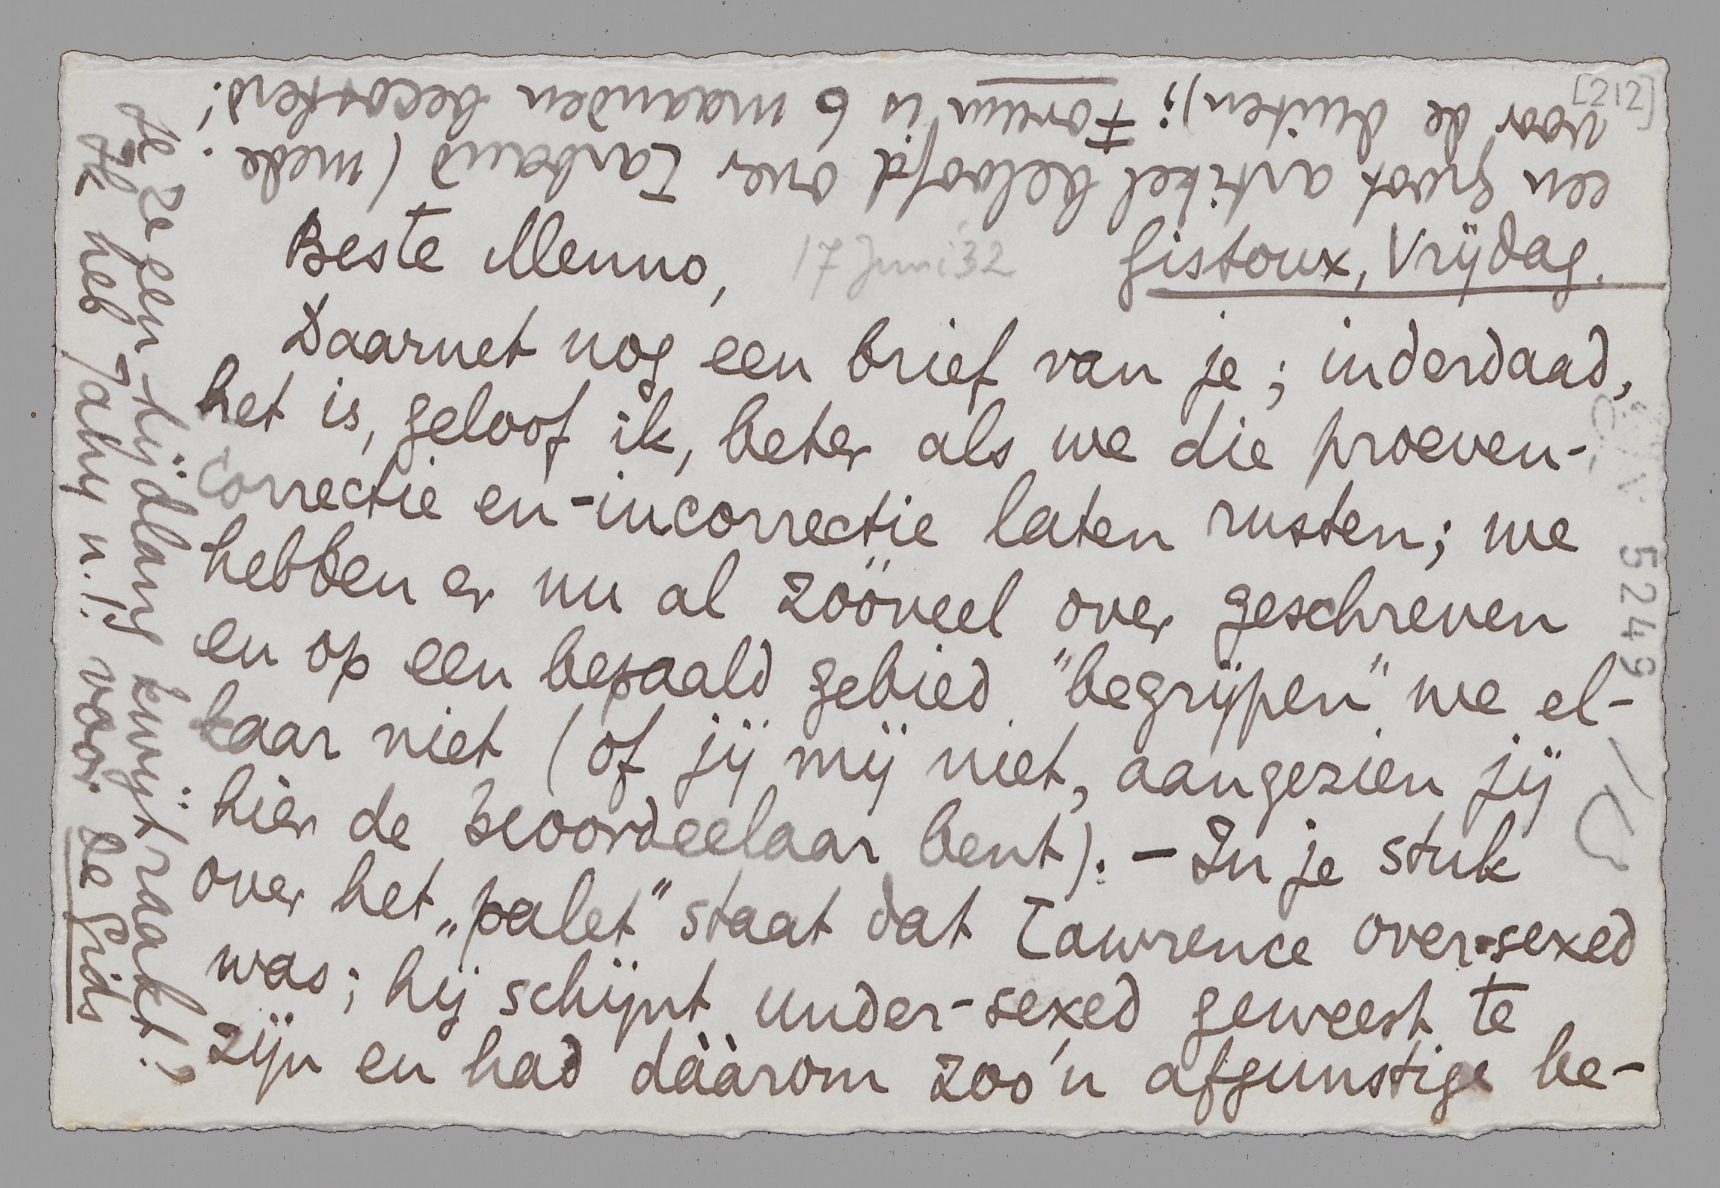 [212]
Beste Menno, 17 Juni '32 Gistoux, Vrijdag.
Daarnet nog een brief van je; inderdaad,
het is, geloof ik, beter als we die proeven-
correctie en -incorrectie laten rusten; we
hebben er nu al zóóveel over geschreven
en op een bepaald gebied "begrijpen" we el-
kaar niet (of jij mij niet, aangezien jij
hier de beoordeelaar bent). — In je stuk
over het „palet" staat dat Lawrence over-sexed
was; hij schijnt under-sexed geweest te
zijn en had dáárom zoo'n afgunstige be-
je ze een tijdlang kwijtraakt?
Ik heb Jany n.l. voor de Gids
een groot artikel beloofd over Larbaud (mede
voor de duiten); Forum is 6 maanden
5249